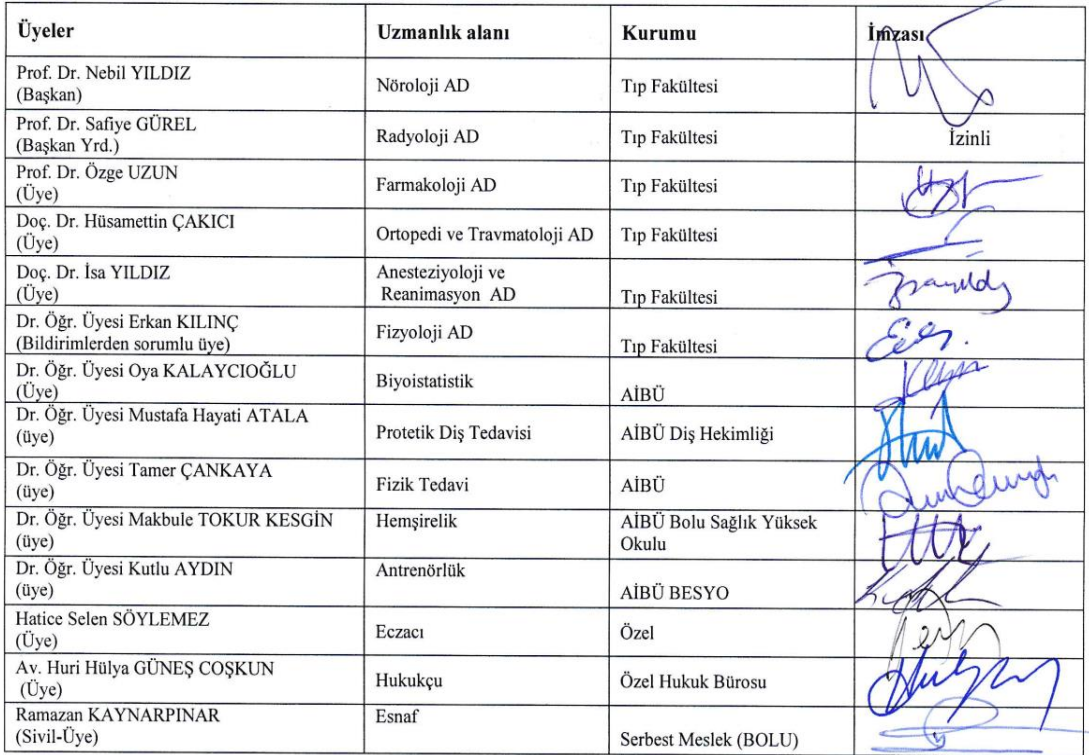 Üyeler Uzmanlık alanı Kurumu İmzası
Prof. Dr. Nebil YILDIZ
(Başkan) Nöroloji AD Tıp Fakültesi
Prof. Dr. Safiye GÜREL
(Başkan Yrd.) Radyoloji AD Tıp Fakültesi İzinli
Prof. Dr. Özge UZUN
(Üye) Farmakoloji AD Tıp Fakültesi
Doç. Dr. Hüsamettin ÇAKICI
(Üye) Ortopedi ve Travmatoloji AD Tıp Fakültesi
Doç. Dr. İsa YILDIZ Anesteziyoloji ve
(Üye) Reanimasyon AD Tıp Fakültesi
Dr. Öğr. Üyesi Erkan KILINÇ
(Bildirimlerden sorumlu üye) Fizyoloji AD Tıp Fakültesi
Dr. Öğr. Üyesi Oya KALAYCIOĞLU
(Üye) Biyoistatistik AİBÜ
Dr. Öğr. Üyesi Mustafa Hayati ATALA
(üye) Protetik Diş Tedavisi AİBÜ Diş Hekimliği
Dr. Öğr. Üyesi Tamer ÇANKAYA
(üye) Fizik Tedavi AİBÜ
Dr. Öğr. Üyesi Makbule TOKUR KESGİN Hemşirelik AİBÜ Bolu Sağlık Yüksek
(üye) Okulu
Dr. Öğr. Üyesi Kutlu AYDIN Antrenörlük
(üye) AİBÜ BESYO
Hatice Selen SÖYLEMEZ
(Üye) Eczacı Özel
Av. Huri Hülya GÜNEŞ COŞKUN
(Üye) Hukukçu Özel Hukuk Bürosu
Ramazan KAYNARPINAR Esnaf
(Sivil-Üye) Serbest Meslek (BOLU)